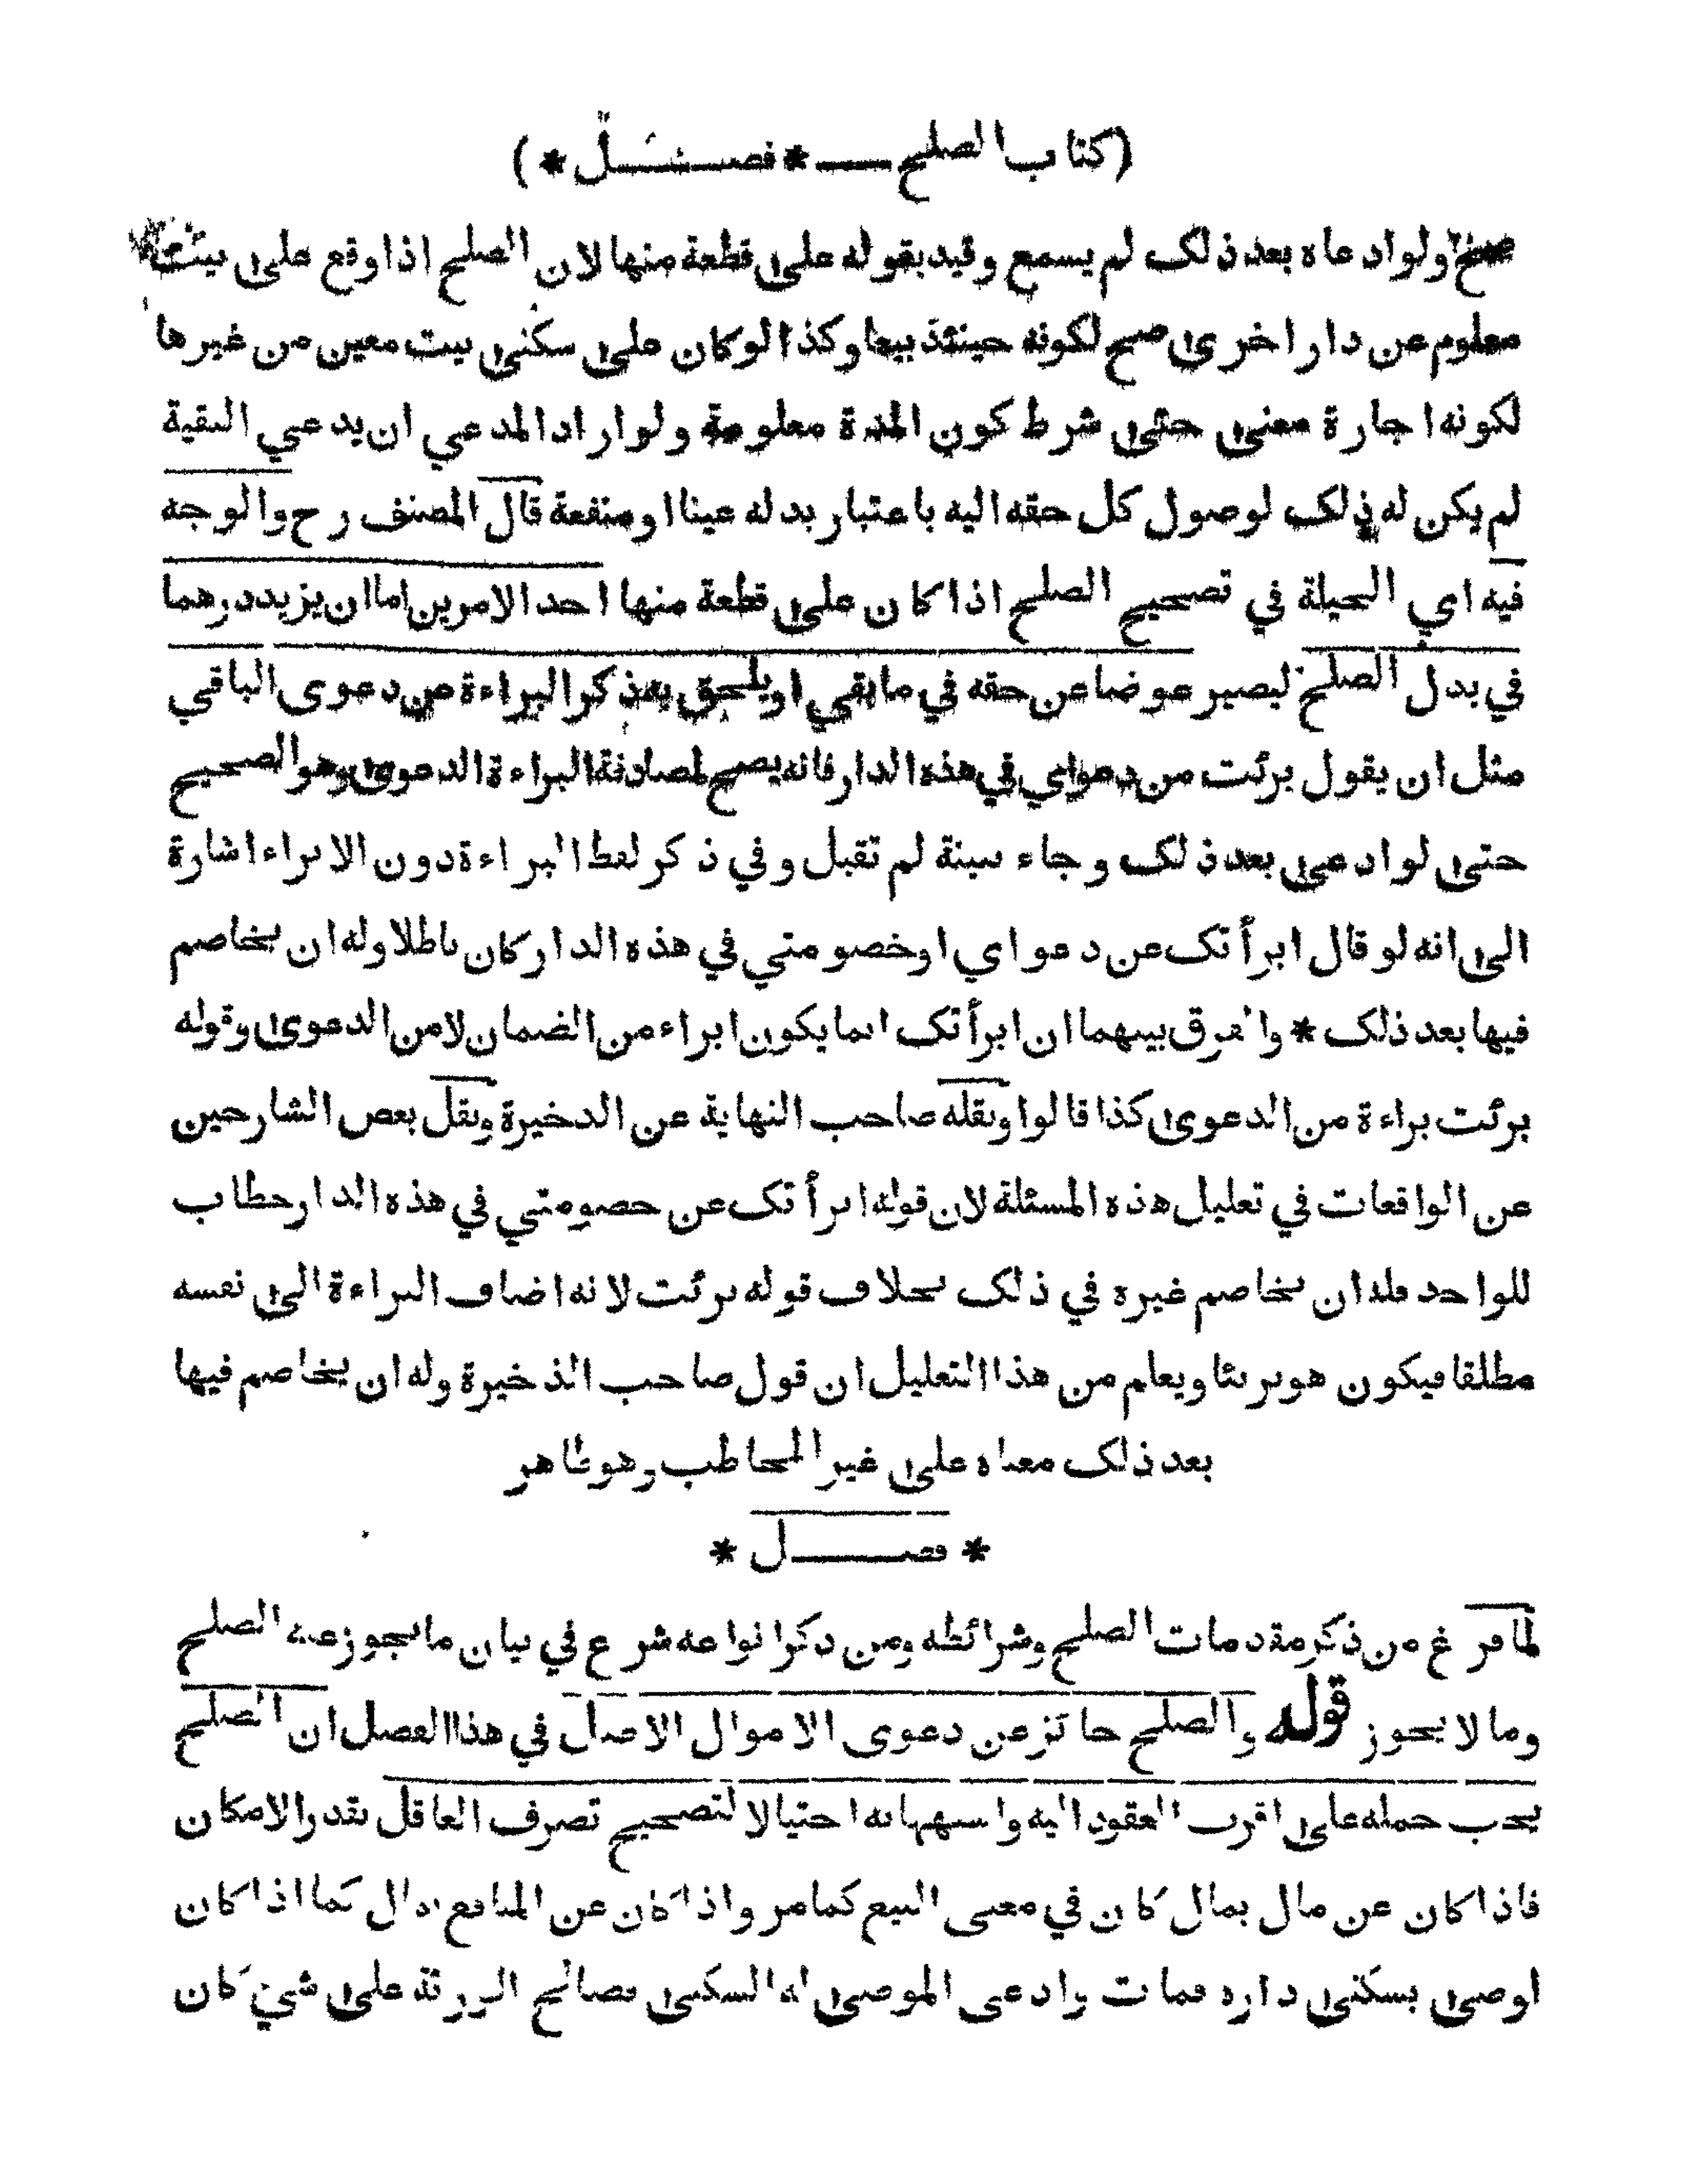 (كتاب الصلح — * فصــــل *)
صح ولو ادعاه بعد ذلك لم يسمع وقيد بقوله على قطعة منها لان الصلح اذا وقع على بيت
معلوم عن دار اخرى صح لكونه حينئذ بيعا وكذا لو كان على سكنى بيت معين من غيرها
لكونه اجارة معنى حتى شرط كون المدة معلومة ولو اراد المدعي ان يدعي البقية
لم يكن له ذلك لوصول كل حقه اليه باعتبار بدله عينا او منفعة قال المصنف رح والوجه
فيه اي الحيلة في تصحيح الصلح اذا كان على قطعة منها احد الامرين اما ان يزيد درهما
في بدل الصلح ليصير عوضا عن حقه في ما بقي او يلحق به ذكر البراءة من دعوى الباقي
مثل ان يقول برئت من دعواي في هذه الدار فانه يصح لمصادفة البراءة الدعوى وهو الصحيح
حتى لو ادعى بعد ذلك وجاء ببينة لم تقبل وفي ذكر لفظ البراءة دون الابراء اشارة
الى انه لو قال ابرأتك عن دعواي او خصومتي في هذه الدار كان باطلا وله ان يخاصم
فيها بعد ذلك * والفرق بينهما ان ابرأتك انما يكون ابراء من الضمان لا من الدعوى وقوله
برئت براءة من الدعوى كذا قالوا ونقله صاحب النهاية عن الذخيرة ونقل بعض الشارحين
عن الواقعات في تعليل هذه المسئلة لان قوله ابرأتك عن خصومتي في هذه الدار خطاب
للواحد فله ان يخاصم غيره في ذلك بخلاف قوله برئت لانه اضاف البراءة الى نفسه
مطلقا فيكون هو بريئا ويعلم من هذا التعليل ان قول صاحب الذخيرة وله ان يخاصم فيها
بعد ذلك معناه على غير المخاطب وهو ظاهر
* فصــــل *
لما فرغ من ذكر مقدمات الصلح وشرائطه ومن ذكر انواعه شرع في بيان ما يجوز عنه الصلح
وما لا يجوز قوله والصلح جائز عن دعوى الاموال الاصل في هذا الفصل ان الصلح
يجب حمله على اقرب العقود اليه واشبهها به احتيالا لتصحيح تصرف العاقل بقدر الامكان
فاذا كان عن مال بمال كان في معنى البيع كما مر واذا كان عن المنافع بمال كما اذا كان
اوصى بسكنى داره فمات وادعى الموصى له السكنى فصالح الورثة على شيء كان